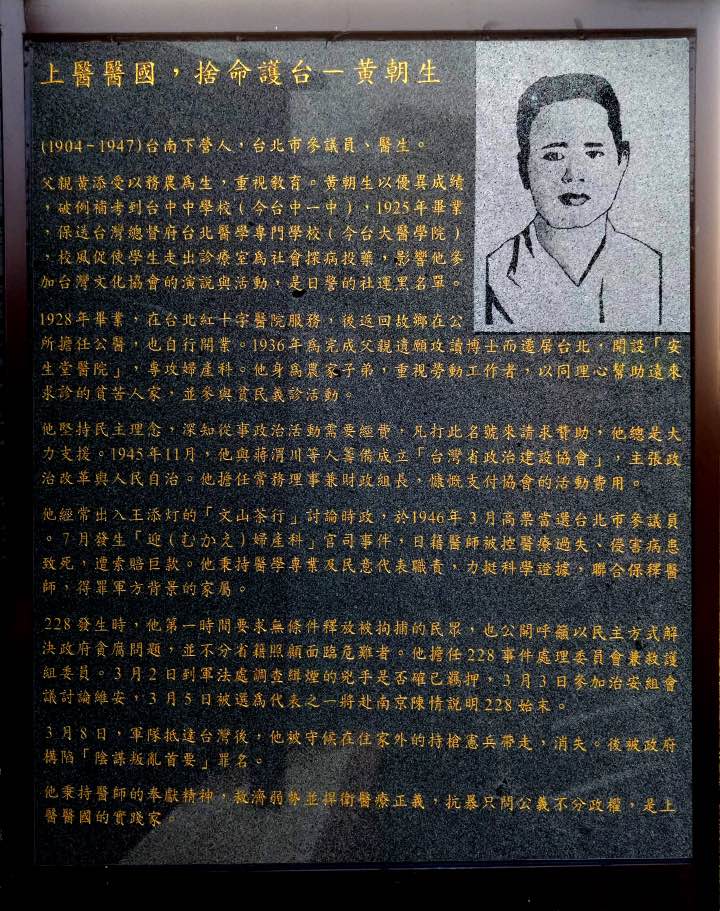 上醫醫國，捨命護台－黃朝生
(1904－1947)台南下營人，台北市參議員、醫生。
父親黃添受以務農為生，重視教育。黃朝生以優異成績
，破例補考到台中中學校（今台中一中），1925年畢業
，保送台灣總督府台北醫學專門學校（今台大醫學院）
，校風促使學生走出診療室為社會探病投藥，影響他參
加台灣文化協會的演說與活動，是日警的社運黑名單。
1928年畢業，在台北紅十字醫院服務，後返回故鄉在公
所擔任公醫，也自行開業。1936年為完成父親遺願攻讀博士而遷居台北，開設「安
生堂醫院」，專攻婦產科。他身為農家子弟，重視勞動工作者，以同理心幫助遠來
求診的貧苦人家，並參與貧民義診活動。
他堅持民主理念，深知從事政治活動需要經費，凡打此名號來請求贊助，他總是大
力支援。1945年11月，他與蔣渭川等人籌備成立「台灣省政治建設協會」，主張政
治改革與人民自治。他擔任常務理事兼財政組長，慷慨支付協會的活動費用。
他經常出入王添灯的「文山茶行」討論時政，於1946年3月高票當選台北市參議員
。7月發生「迎(むかえ)婦產科」官司事件，日籍醫師被控醫療過失、侵害病患
致死，遭索賠巨款。他秉持醫學專業及民意代表職責，力挺科學證據，聯合保釋醫
師，得罪軍方背景的家屬。
228發生時，他第一時間要求無條件釋放被拘捕的民眾，也公開呼籲以民主方式解
決政府貪腐問題，並不分省籍照顧面臨危難者。他擔任228事件處理委員會兼救護
組委員。3月2日到軍法處調查緝煙的兇手是否確已羈押，3月3日參加治安組會
議討論維安，3月5日被選為代表之一將赴南京陳情說明228始末。
3月8日，軍隊抵達台灣後，他被守候在住家外的持槍憲兵帶走，消失。後被政府
構陷「陰謀叛亂首要」罪名。
他秉持醫師的奉獻精神，救濟弱勢並捍衛醫療正義，抗暴只問公義不分政權，是上
醫醫國的實踐家。